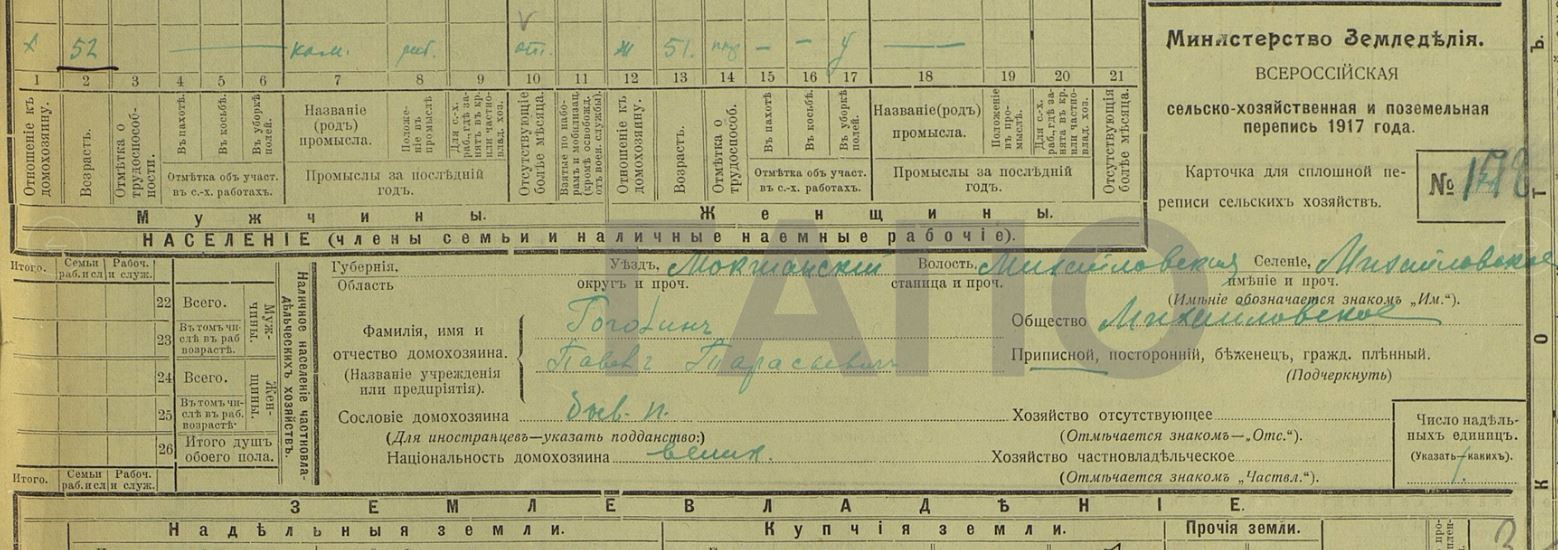 х 52 кам. раб. отс. ж 51. у
1 2 3 4 5 6 7 8 9 10 11 12 13 14 15 16 17 18 19 20 21
Отношеніе къ домохозяину.
Возрастъ.
Отмѣтка о трудоспособ- ности.
Въ пахотѣ.
Въ косьбѣ.
Въ уборкѣ полей.
Отмѣтка объ участ. въ с.-х. работахъ.
Названіе (родъ) промысла.
Положе- ніе въ промыслѣ
Для с.-х. раб., гдѣ за- нятъ въ кр. или частно- влад. хоз.
Промыслы за послѣдній годъ.
Отсутствующіе болѣе мѣсяца.
Взятые по набо- рамъ и мобилизац. (кромѣ освобожд. отъ воен. службы).
Отношеніе къ домохозяину.
Возрастъ.
Отмѣтка о трудоспособ.
Въ пахотѣ
Въ косьбѣ.
Въ уборкѣ полей.
Отмѣтка объ участ. въ с.-х. работахъ.
Названіе(родъ) промысла.
Положеніе въ про- мыслѣ.
Для с.-х. раб., гдѣ за- нята въ кр. или частно- влад. хоз.
Промыслы за послѣдній годъ.
Отсутствующія болѣе мѣсяца.
Мужчины. Женщины.
НАСЕЛЕНІЕ (члены семьи и наличные наемные рабочіе).
Министерство Земледѣлія.
ВСЕРОССІЙСКАЯ
сельско-хозяйственная и поземельная
перепись 1917 года.
Карточка для сплошной пе-
реписи сельскихъ хозяйствъ.
№
Итого. Семьи раб. и сл. Рабоч. и служ.
22 Всего.
23 Въ томъ чи- слѣ въ раб возрастѣ.
Муж- чины.
24 Всего.
25 Въ томъ чи- слѣ въ раб. возрастѣ.
Жен- щины.
26 Итого душъ обоего пола.
Итого. Семьи раб. и сл. Рабоч. и служ.
Наличное населеніе частновла- дѣльческихъ хозяйствъ.
Губернія. Уѣздъ, Мокшанскій Волость, Михайловская Селеніе, Михайловское
Область округъ и проч. станица и проч. имѣніе и проч.
(Имѣніе обозначается знакомъ „Им.“).
Фамилія, имя и
отчество домохозяина.
(Названіе учрежденія
или предпріятія).
Павелъ Тарасьевич
Общество Михайловское
Приписной, посторонній, бѣженецъ, гражд. плѣнный.
(Подчеркнуть)
Сословіе домохозяина быв. п.
(Для иностранцевъ—указать подданство:)
Національность домохозяина велик.
Хозяйство отсутствующее
(Отмѣчается знакомъ—„Отс.“).
Хозяйство частновладѣльческое
(Отмѣчается знакомъ „Частвл.“).
Число надѣль-
ныхъ единицъ.
(Указать—какихъ).
1.
ГАПО
ЗЕМЛЕВЛАДѢНІЕ.
Надѣльныя земли. Купчія земли. Прочія земли.